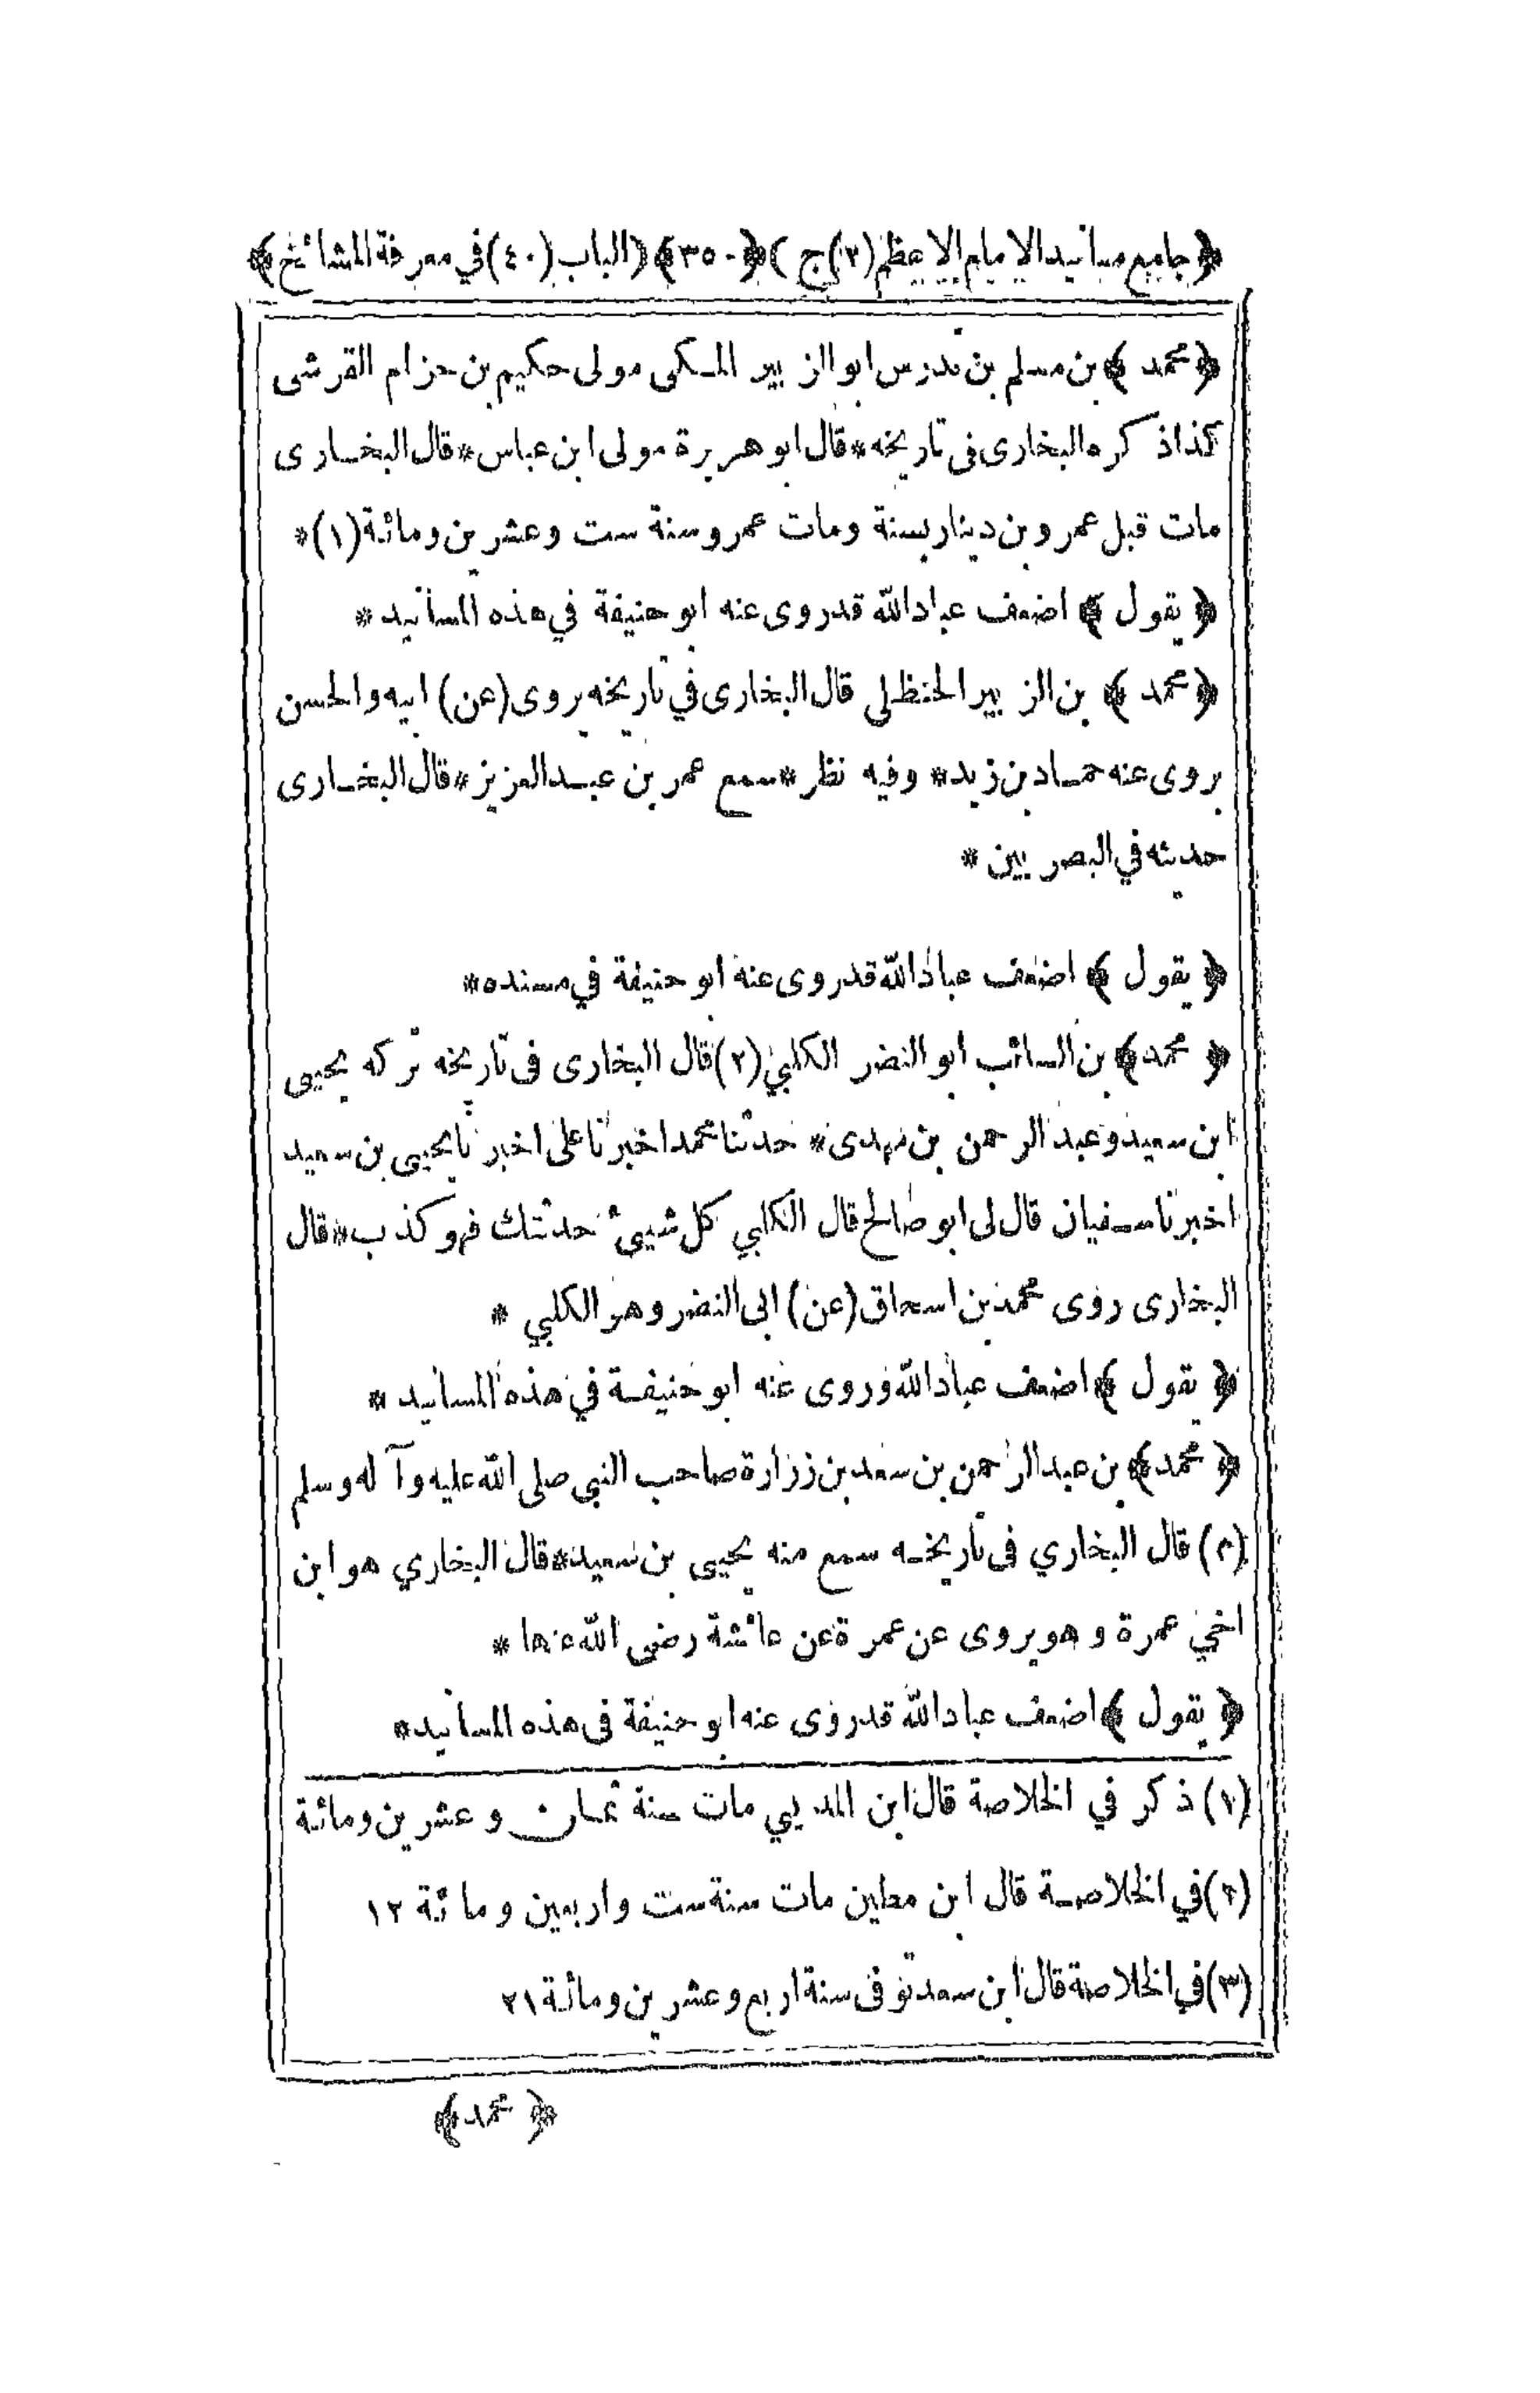 ﴿جامع مسانيد الامام الاعظم (٢) ج ﴾ ﴿٣٥٠﴾ ﴿الباب (٤٠) في معرفة المشائخ﴾
﴿ محمد ﴾ بن مسلم بن تدرس ابو الزبير المكى مولى حكيم بن حزام القرشى
كذا ذكره البخارى فى تاريخه * قال ابو هريرة مولى ابن عباس * قال البخارى
مات قبل عمرو بن دينار بسنة ومات عمرو سنة ست وعشرين ومائة (١) *
﴿ يقول ﴾ اضعف عباد الله قد روى عنه ابو حنيفة في هذه المسانيد *
﴿ محمد ﴾ بن الزبير الحنظلى قال البخارى في تاريخه يروى (عن) ابيه والحسن
يروى عنه حماد بن زيد * وفيه نظر * سمع عمر بن عبد العزيز * قال البخارى
حديثه في البصريين *
﴿ يقول ﴾ اضعف عباد الله قد روى عنه ابو حنيفة في مسنده *
﴿ محمد ﴾ بن السائب ابو النضر الكلبي (٢) قال البخارى فى تاريخه تركه يحيى
ابن سعيد وعبد الرحمن بن مهدى * حدثنا محمد اخبرنا على اخبرنا يحيى بن سعيد
اخبرنا سفيان قال لى ابو صالح قال الكلبي كل شيئ حدثتك فهو كذب * قال
البخارى روى محمد بن اسحاق (عن) ابى النضر وهو الكلبي *
﴿ يقول ﴾ اضعف عباد الله وروى عنه ابو حنيفة في هذه المسانيد *
﴿ محمد ﴾ بن عبد الرحمن بن سعد بن زرارة صاحب النبى صلى الله عليه وآله وسلم
(٣) قال البخاري فى تاريخه سمع منه يحيى بن سعيد * قال البخاري هو ابن
اخي عمرة وهو يروى عن عمرة عن عائشة رضى الله عنها *
﴿ يقول ﴾ اضعف عباد الله قد روى عنه ابو حنيفة فى هذه المسانيد *
(١) ذكر في الخلاصة قال ابن المديني مات سنة ثمان وعشرين ومائة
(٢) في الخلاصة قال ابن معين مات سنة ست واربعين ومائة ١٢
(٣) في الخلاصة قال ابن سعد توفى سنة اربع وعشرين ومائة ٢١
﴿ محمد ﴾